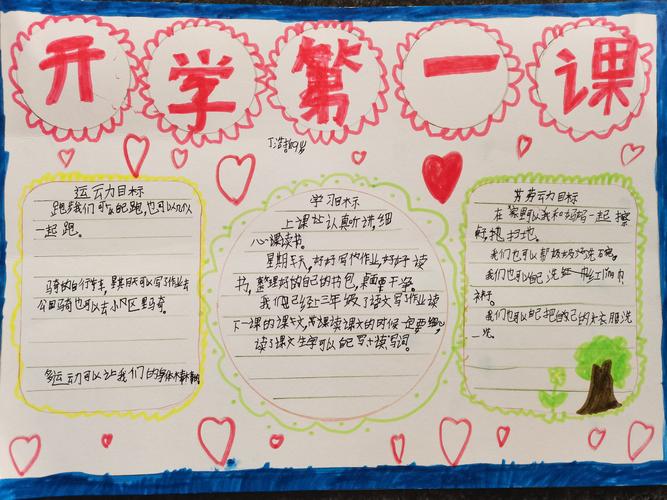 开学第一课
运动力目标
跑步我们可以吧跑,也可以几从
一起跑。
骑的自行车,星期天可以写了作业去
公园骑也可以去小区里骑。
多运动可以让我们的身体
学习目标
上课让认真听讲,细
心课读书。
星期天,好好写作业,好好读
书,整理好的自己的书包,桌面要干净。
我们已经上三年级了读文写了作业读
下一课的课文,读课文的时候一定要细心
读了课文生字可以吧写十读写词。
劳动力目标
在家野以我和妈妈一起擦
扫地。
我们也可以帮妈妈洗碗,
我们也可以吧洗红巾巾
袜子。
我们也可以吧把自己的衣服洗
一洗。